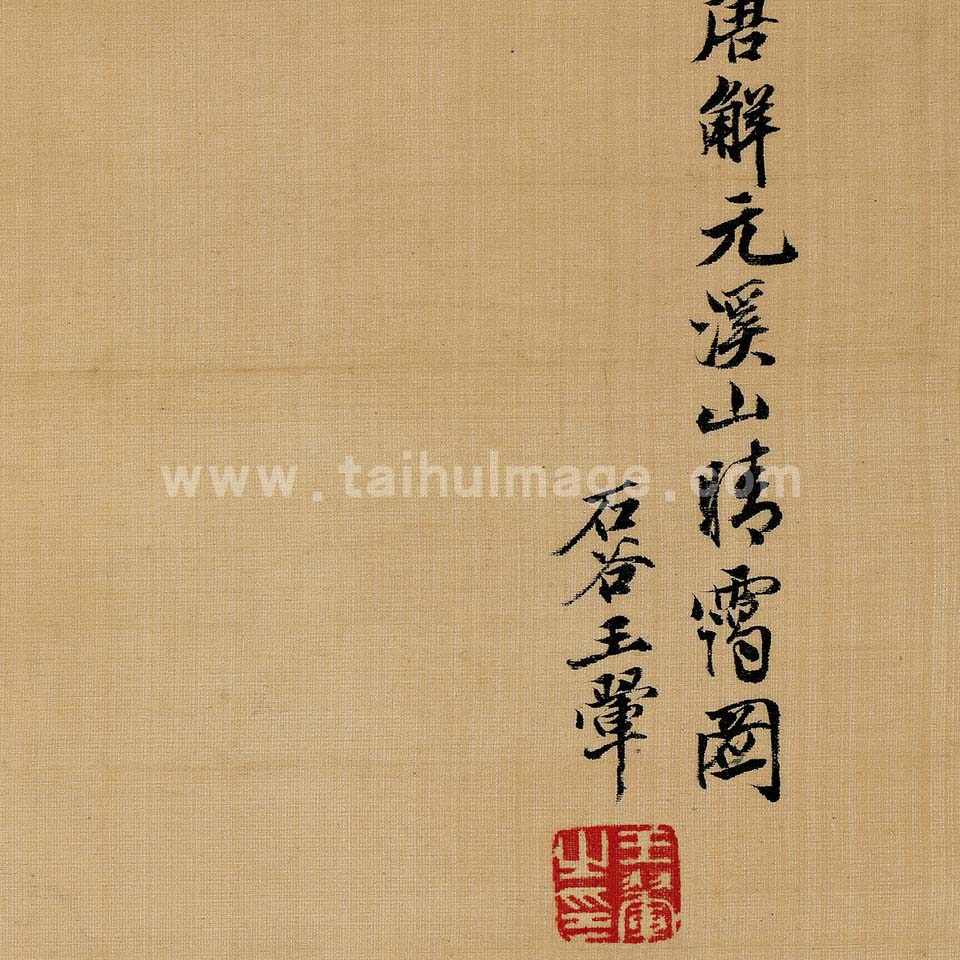 唐解元溪山晴圖
石谷王翬
王翬之印
www.taihuImage.com